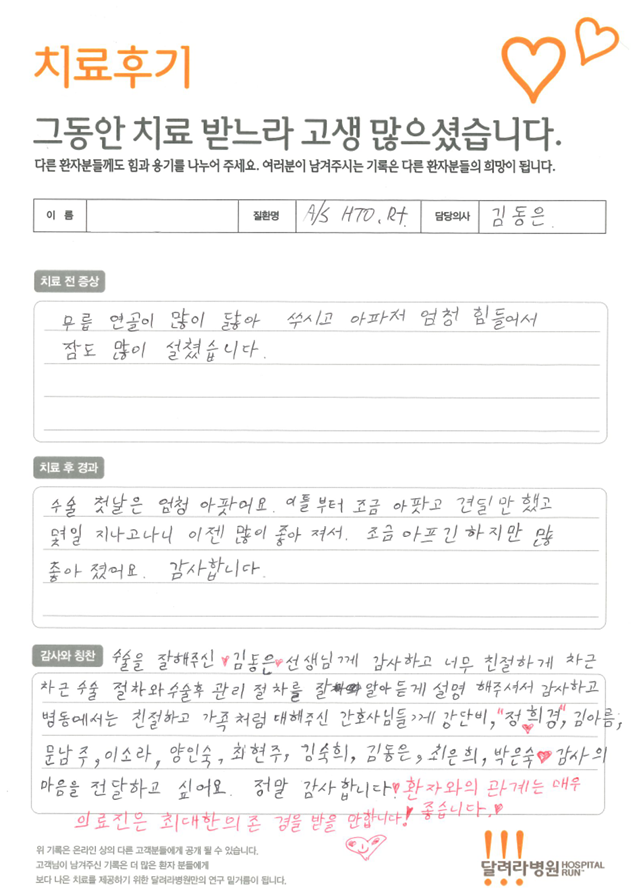 치료후기
그동안 치료 받느라 고생 많으셨습니다.
다른 환자분들께도 힘과 용기를 나누어 주세요. 여러분이 남겨주시는 기록은 다른 환자분들의 희망이 됩니다.
이 름 질환명 A/S HTO. Rt. 담당의사 김동은
치료 전 증상
무릎 연골이 많이 닳아 쑤시고 아파저 엄청 힘들어서
잠도 많이 설쳤습니다.
치료 후 경과
수술 첫날은 엄청 아팟어요. 이틀부터 조금 아팟고 견딜만 했고
몇일 지나고나니 이젠 많이 좋아 져서. 조금 아프긴 하지만 많
좋아 졌어요. 감사합니다.
감사와 칭찬 수술을 잘해주신 ♥김동은♥선생님께 감사하고 너무 친절하게 차근
차근 수술 절차와 수술후 관리 절차를 잘 알아듣게 설명 해주셔서 감사하고
병동에서는 친절하고 가족처럼 대해주신 간호사님들께 강단비, "정희경", 김아름,
문남주, 이소라, 양인숙, 최현주, 김숙희, 김동은, 최은희, 박은숙♥감사의
마음을 전달하고 싶어요. 정말 감사합니다♥ 환자와의 관계는 매우
좋습니다.♥
의료진은 최대한의 존경을 받을 만합니다!
위 기록은 온라인 상의 다른 고객분들에게 공개 될 수 있습니다.
고객님이 남겨주신 기록은 더 많은 환자 분들에게
보다 나은 치료를 제공하기 위한 달려라병원만의 연구 밑거름이 됩니다.
달려라병원 HOSPITAL RUN™